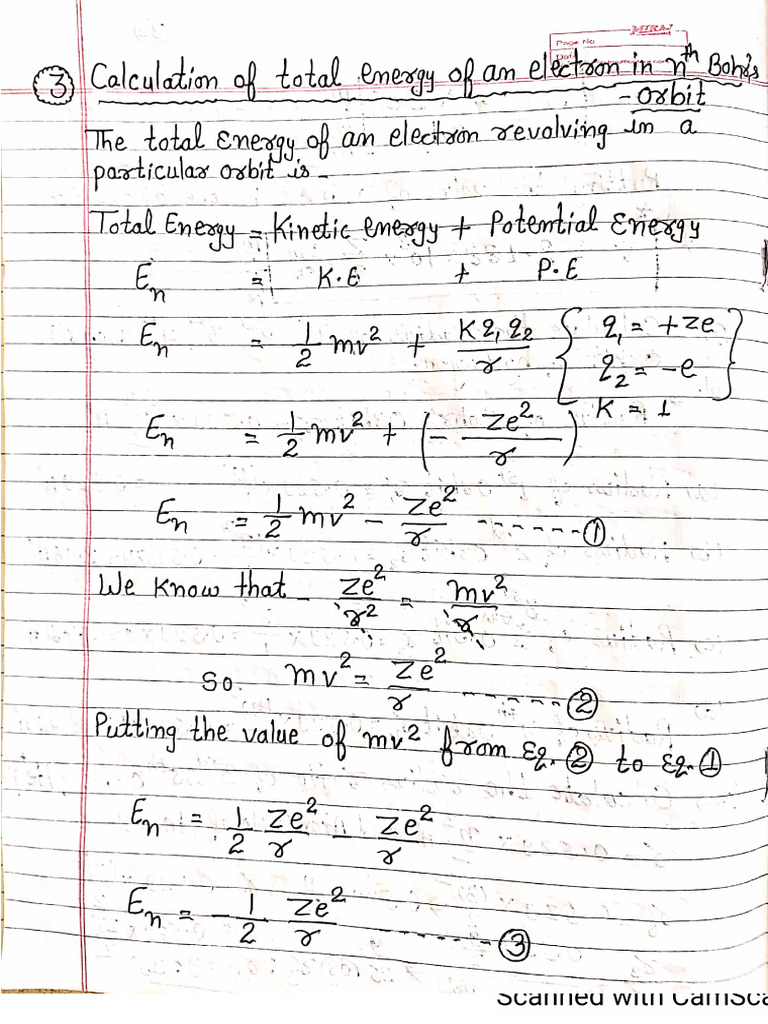 MIRAJ
Page No
③ Calculation of total energy of an electron in nᵗʰ Bohr's
- Orbit
The total Energy of an electron revolving in a
particular orbit is -
Total Energy = Kinetic energy + Potential Energy
Eₙ = K.E + P.E
Eₙ = 1/2 mv² + Kq₁q₂/r { q₁ = +Ze
q₂ = -e }
K = 1
Eₙ = 1/2 mv² + (- Ze²/r)
Eₙ = 1/2 mv² - Ze²/r ------- ①
We know that - Ze²/r² = mv²/r
So. mv² = Ze²/r ------ ②
Putting the value of mv² from Eq. ② to Eq. ①
Eₙ = 1/2 Ze²/r - Ze²/r
Eₙ = - 1/2 Ze²/r ------ ③
Scanned with CamSca